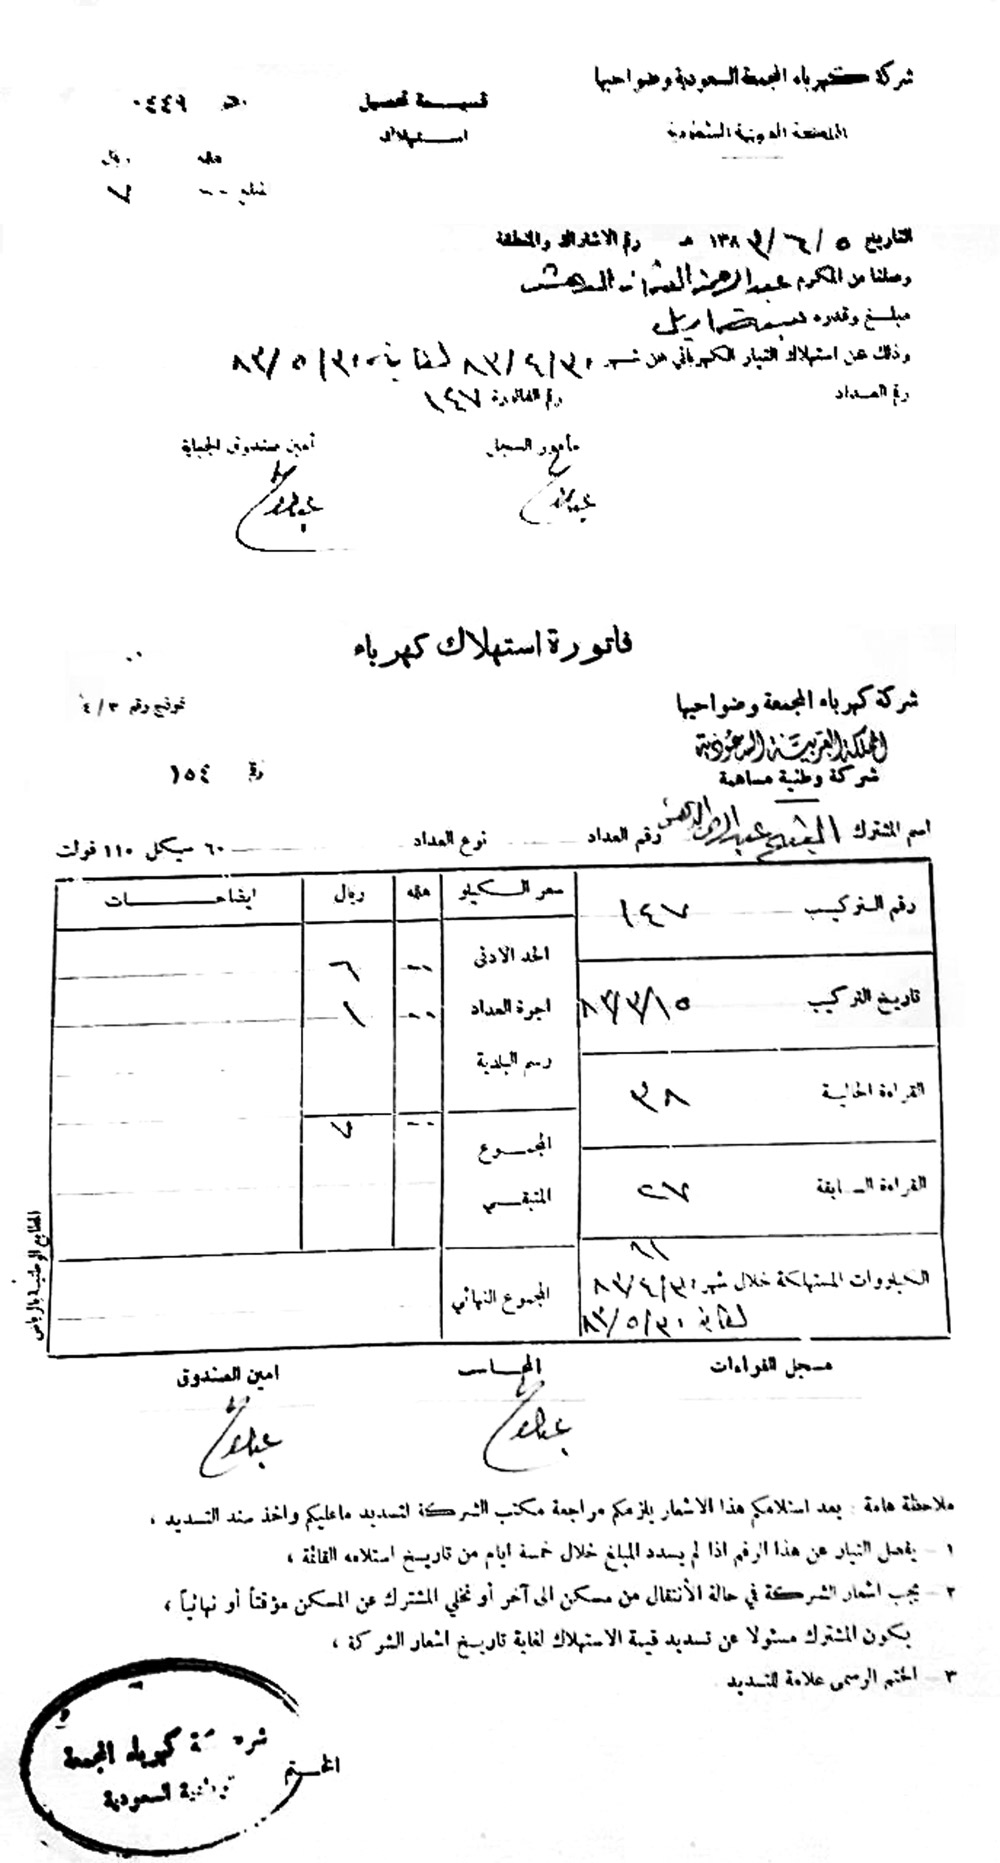 شركة كهرباء المجمعة السعودية وضواحيها
قسيمة تحصيل
٠٤٤٩
المملكة العربية السعودية
استهلاك
هلله ريال
المبلغ -- ٧
التاريخ ٥ / ٦ / ١٣٨ هـ رقم الاشتراك والمنطقة
وصلنا من المكرم عبدالرحمن
مبلغ وقدره سبعة ريال
وذلك عن استهلاك التيار الكهربائي عن شهر ٣٠/٤/٨٣ لغاية ٣٠/٥/٨٣
رقم العداد رقم الفاتورة ١٤٧
مأمور السجل أمين صندوق الجباية
فاتورة استهلاك كهرباء
شركة كهرباء المجمعة وضواحيها
نموذج رقم ٤/٣
المملكة العربية السعودية
شركة وطنية مساهمة
رقم ١٥٤
اسم المشترك الشيخ رقم العداد نوع العداد ٦٠ سيكل ١١٠ فولت
رقم التركيب ١٤٧
سعر الكيلو هلله ريال ايضاحات
الحد الادنى -- ٦
تاريخ التركيب ١٥/٣/٨٣
اجرة العداد -- ١
رسم البلدية
القراءة الحالية ٣٨
المجموع -- ٧
القراءة السابقة ٢٧
المتبقي
١١
الكيلووات المستهلكة خلال شهر ٣٠/٤/٨٣
لغاية ٣٠/٥/٨٣
المجموع النهائي
المطابع الوطنية بالرياض
مسجل القراءات المحاسب امين الصندوق
ملاحظة هامة : بعد استلامكم هذا الاشعار يلزمكم مراجعة مكتب الشركة لتسديد ماعليكم واخذ سند التسديد ،
١ – يفصل التيار عن هذا الرقم اذا لم يسدد المبلغ خلال خمسة ايام من تاريخ استلامه القائمة ،
٢ – يجب اشعار الشركة في حالة الأنتقال من مسكن الى آخر أو تخلي المشترك عن المسكن مؤقتاً أو نهائياً ،
يكون المشترك مسئولا عن تسديد قيمة الاستهلاك لغاية تاريخ اشعار الشركة ،
٣ – الختم الرسمى علامة للتسديد
الختم
شركة كهرباء المجمعة
السعودية